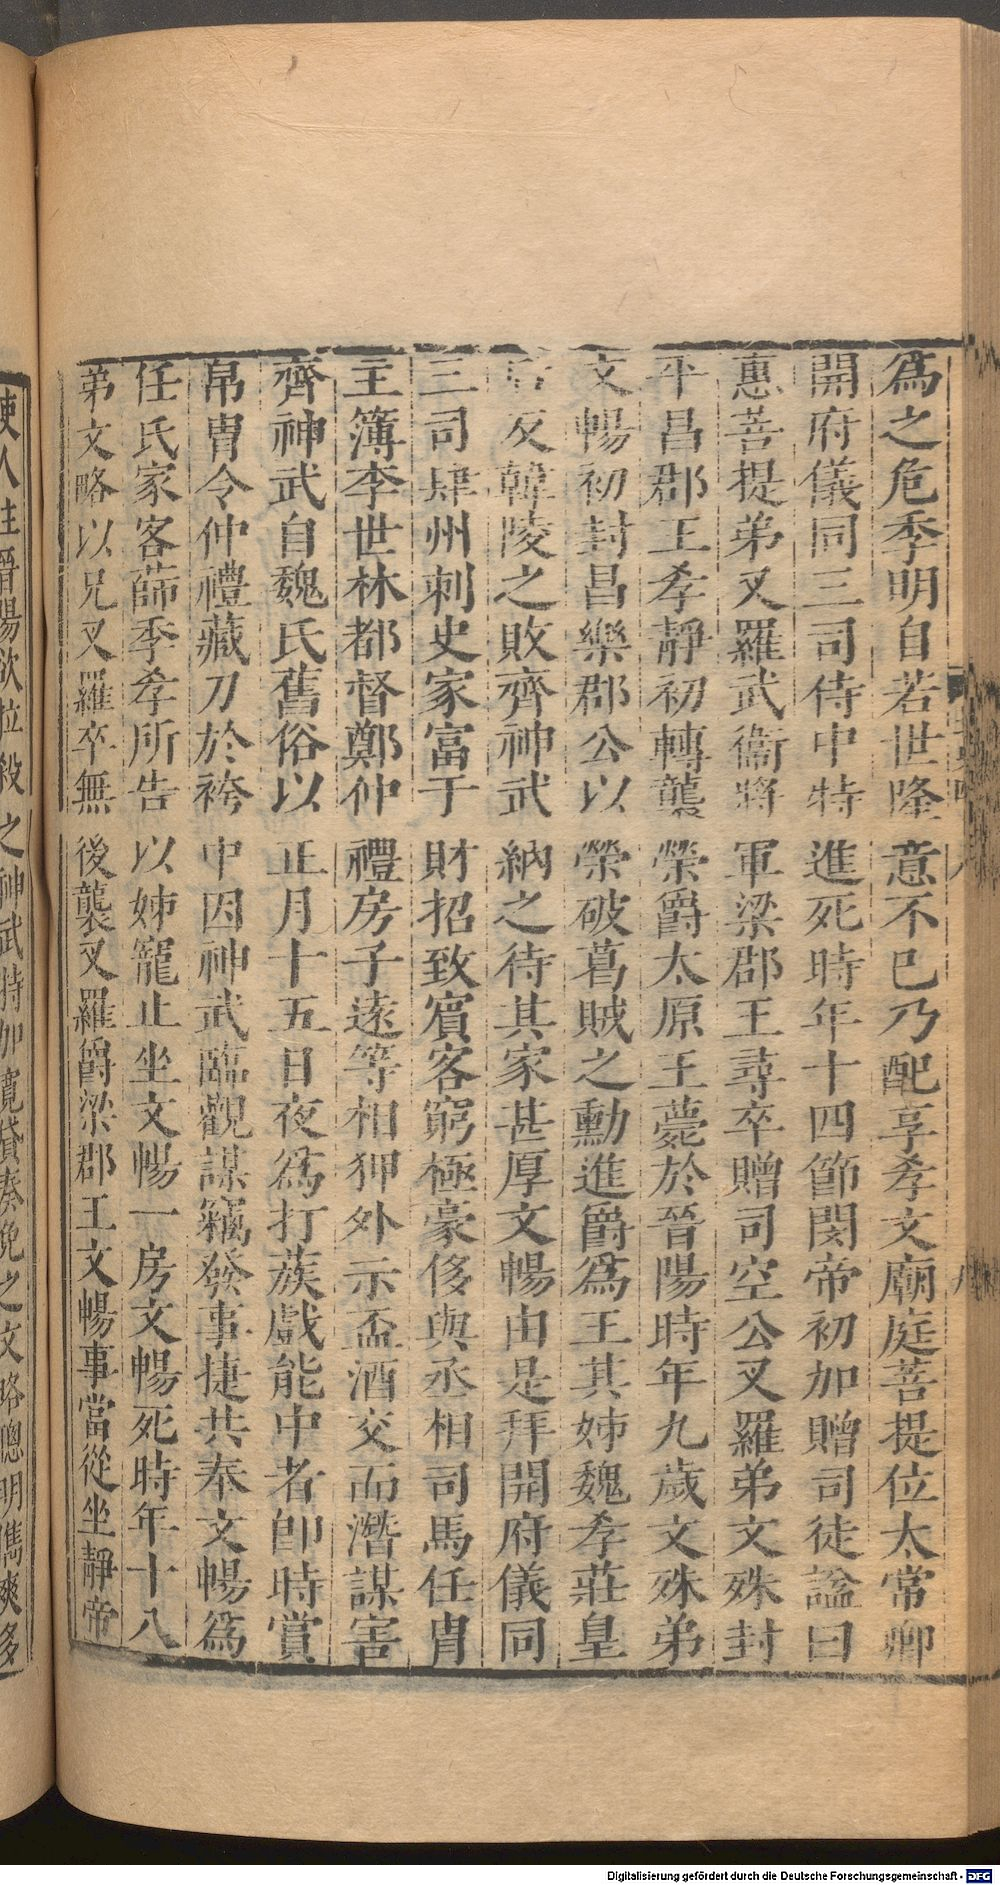 爲之危季明自若世隆意不已乃配享孝文廟庭菩提位太常卿
開府儀同三司侍中特進死時年十四節閔帝初加贈司徒諡曰
惠菩提弟叉羅武衞將軍梁郡王尋卒贈司空公叉羅弟文殊封
平昌郡王孝靜初轉襲榮爵太原王薨於晉陽時年九歲文殊弟
文暢初封昌樂郡公以榮破葛賊之勳進爵爲王其姊魏孝莊皇
后及韓陵之敗齊神武納之待其家甚厚文暢由是拜開府儀同
三司肆州刺史家富于財招致賓客窮極豪侈與丞相司馬任胄
主簿李世林都督鄭仲禮房子遠等相狎外示盃酒交而潛謀害
齊神武自魏氏舊俗以正月十五日夜爲打蔟戲能中者卽時賞
帛胄令仲禮藏刀於袴中因神武臨觀謀竊發事捷共奉文暢爲
任氏家客薛季孝所告以姊寵止坐文暢一房文暢死時年十八
弟文略以兄叉羅卒無後襲叉羅爵梁郡王文暢事當從坐靜帝
使人往晉陽欲拉殺之神武特加寬貸奏免之文略聰明儁爽多
Digitalisierung gefördert durch die Deutsche Forschungsgemeinschaft - DFG